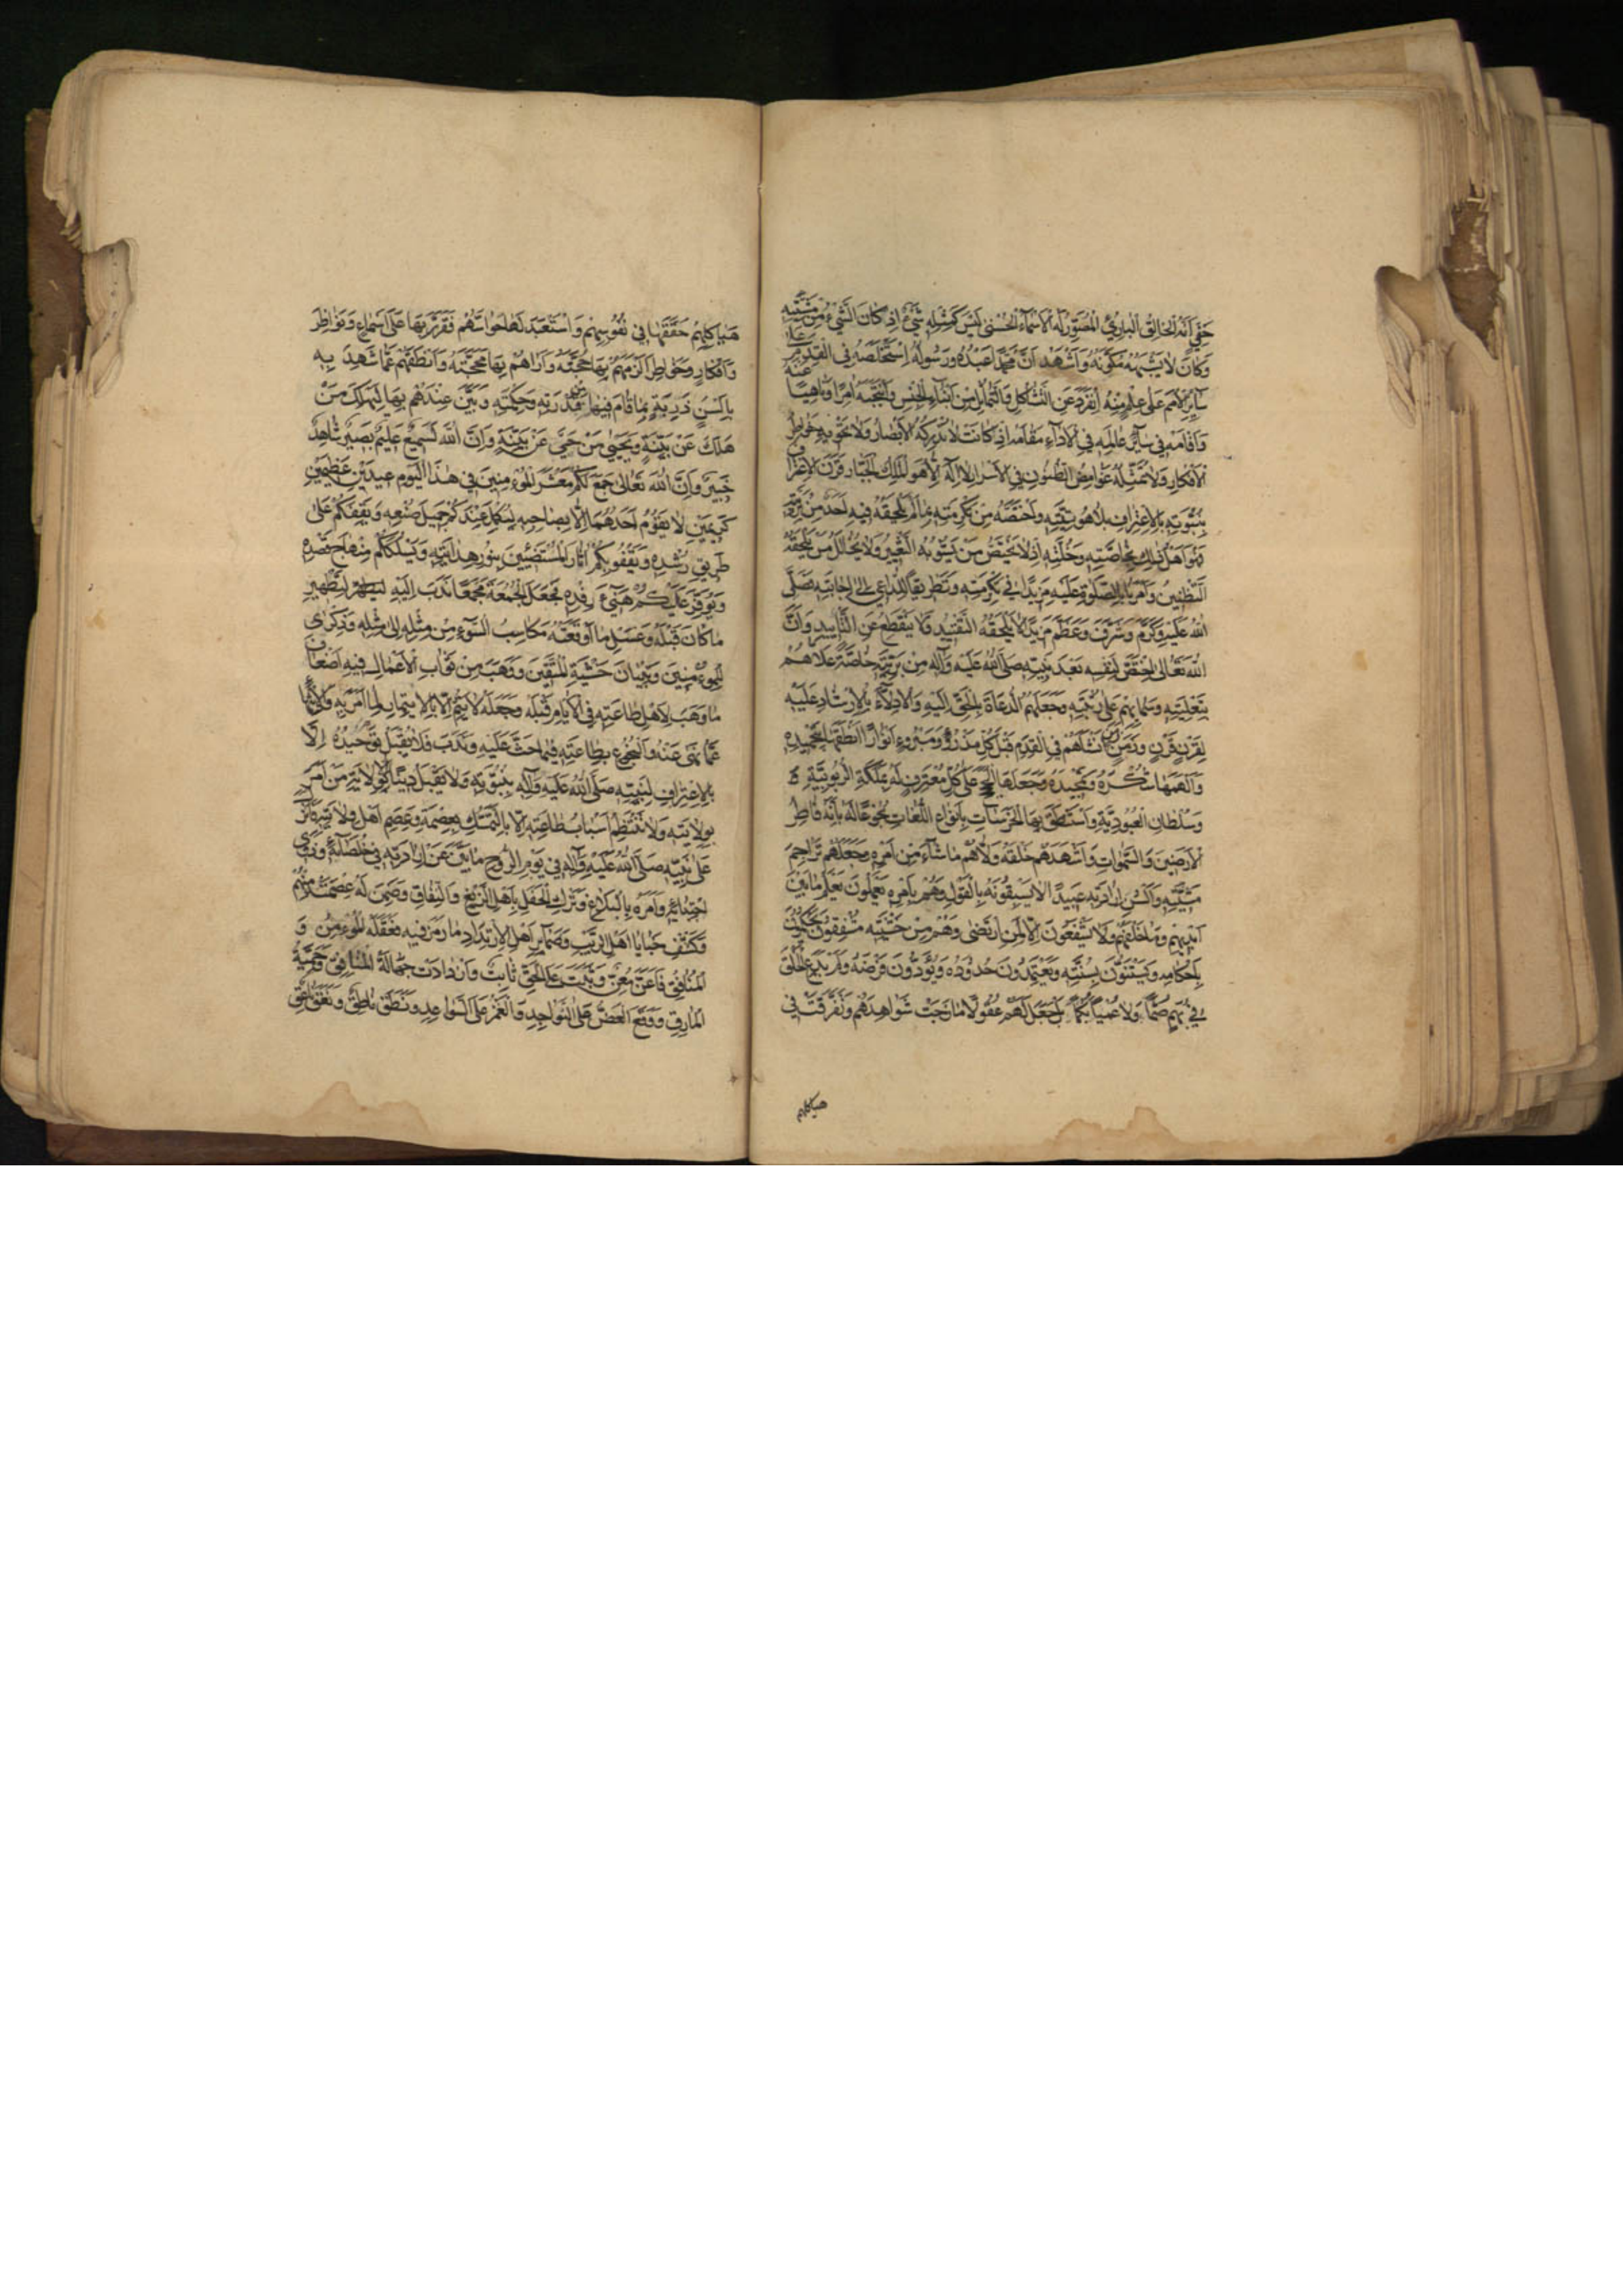 خفي انه الخالق الباريء المصوّر له الاسماء الحسنى ليس كمثله شيء اذ كان الشيء من مشيّته
وكان لا يشبهه مكوّنه واشهد انّ محمّدا عبده ورسوله استخلصه في القدم على
ساير الامم على علم منه انفرد عن التشاكل والتماثل من ابناء الجنس وانتجبه امرا وناهيا عنه
واقامه في ساير عالمه في الاداء مقامه اذ كانت لا تدركه الابصار ولا تحويه خواطر
الافكار ولا تمثّله غوامض الظنون في الاسرار لا اله الا هو الملك الجبّار قرن الاعتراف
بنبوّته بالاعتراف بلاهوتيّته واختصّه من تكرمته بما لم يلحقه فيه احد من بريّته
فهو اهل ذلك بخاصّته وخلّته اذ لا يختصّ من يشوبه التغيير ولا يخالل من يلحقه
التظنين وامر بالصّلوة عليه مزيدا في تكرمته وتطريقا للداعي الى اجابته صلّى
الله عليه وكرّم وشرّف وعظّم مزيدا لا يلحقه التفنيد ولا ينقطع عن التابيد وانّ
الله تعالى اختصّ لنفسه بعد نبيّه صلى الله عليه وآله من بريّته خاصّة علاهم
بتعليته وسما بهم على رتبته وجعلهم الدعاة بالحقّ اليه والادلاّء بالارشاد عليه
لقرن قرن وزمن زمن انشاهم في القدم قبل كلّ مذروء ومبروء انوارا انطقها بتحميده
والهمها شكره وتمجيده وجعلها الحجج على كلّ معترف له بملكة الربوبيّة
وسلطان العبوديّة واستنطق بها الخرسات بانواع اللغات بخوعا له بانّه فاطر
الارضين والسّموات واشهدهم خلقه وولاّهم ما شاء من امره وجعلهم تراجم
مشيّته والسن ارادته عبيدا لا يسبقونه بالقول وهم بامره يعملون يعلم ما بين
ايديهم وما خلفهم ولا يشفعون الا لمن ارتضى وهم من خشيته مشفقون يحكمون
باحكامه ويستنّون بسنّته ويعتمدون حدوده ويؤدّون فرضه ولم يدع الخلق
في بهم صمّا ولا عميا بكما بل جعل لهم عقولا مازجت شواهدهم وتفرّقت في
هياكلهم
هياكلهم حقّقها في نفوسهم واستعبد لها حواسّهم فقرّر بها على اسماع ونواظر
وافكار وخواطر الزمهم بها حجّته واراهم بها محجّته وانطقهم عمّا شهد به
بالسن ذربة بما قام فيها من قدرته وحكمته وبيّن عندهم بها ليهلك من
هلك عن بيّنة ويحيى من حيّ عن بيّنة وانّ الله لسميع عليم بصير شاهد
خبير وانّ الله تعالى جمع لكم معشر المؤمنين في هذا اليوم عيدين عظيمين
كريمين لا يقوم احدهما الا بصاحبه ليكمل عندكم جميل صنعه ويقفكم على
طريق رشده ويقفو بكم اثار المستضيئين بنور هدايته ويسلككم منهاج قصده
ويوفّر عليكم هنيء رفده فجعل الجمعة مجمعا ندب اليه ليطهر لتطهير
ما كان قبله وغسل ما اوقعته مكاسب السّوء من مثله الى مثله وذكرى
للمؤمنين وتبيان خشية المتّقين ووهب من ثواب الاعمال فيه اضعاف
ما وهب لاهل طاعته في الايام قبله وجعله لا يتمّ الا بالايتمار لما امر به والانتهاء
عمّا نهى عنه والبخوع بطاعته فيما حثّ عليه وندب فلا يقبل توحيده الا
بالاعتراف لنبيّه صلى الله عليه وآله بنبوّته ولا يقبل دينا الا بولاية من امر
بولايته ولا تنتظم اسباب طاعته الا بالتمسّك بعصمه وعصم اهل ولايته فانزل
على نبيّه صلى الله عليه وآله في يوم الدوح ما بيّن عن ارادته في خلصآئه وذوي
اجتبائه وامره بالبلاغ وترك الحفل باهل الزيغ والنفاق وضمن له عصمته منهم
وكشف خبايا اهل الريب وضماير اهل الارتداد ما رمز فيه فعقله المؤمن و
المنافق فاعنّ معنّ وثبت على الحقّ ثابت وازدادت جهالة المنافق وحميّة
المارق ووقع العضّ على النواجد والغمز على السّواعد ونطق ناطق ونعق ناعق